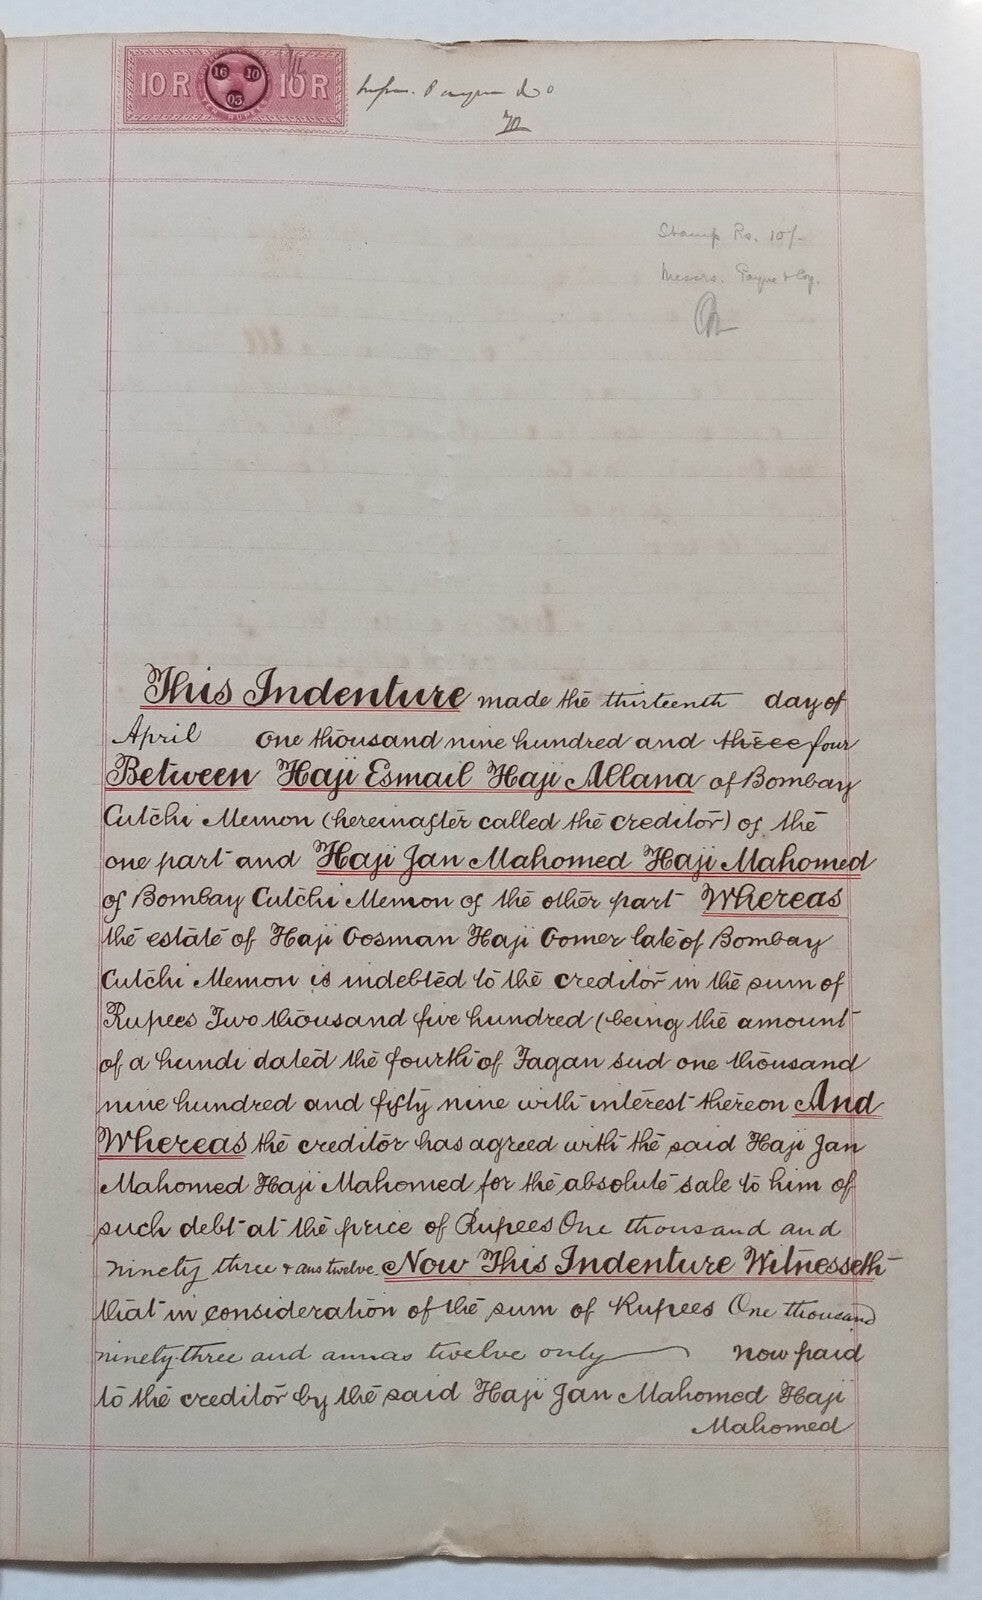 10 R 16 10 03 10 R
Stamp Rs. 10/-
Messrs. Payne & Coy.
This Indenture made the thirteenth day of
April One thousand nine hundred and three four
Between Haji Esmail Haji Allana of Bombay
Cutchi Memon (hereinafter called the creditor) of the
one part and Haji Jan Mahomed Haji Mahomed
of Bombay Cutchi Memon of the other part Whereas
the estate of Haji Oosman Haji Oomer late of Bombay
Cutchi Memon is indebted to the creditor in the sum of
Rupees Two thousand five hundred (being the amount
of a hundi dated the fourth of Fagan sud one thousand
nine hundred and fifty nine with interest thereon And
Whereas the creditor has agreed with the said Haji Jan
Mahomed Haji Mahomed for the absolute sale to him of
such debt at the price of Rupees One thousand and
ninety three & ans twelve. Now This Indenture Witnesseth
that in consideration of the sum of Rupees One thousand
ninety-three and annas twelve only now paid
to the creditor by the said Haji Jan Mahomed Haji
Mahomed